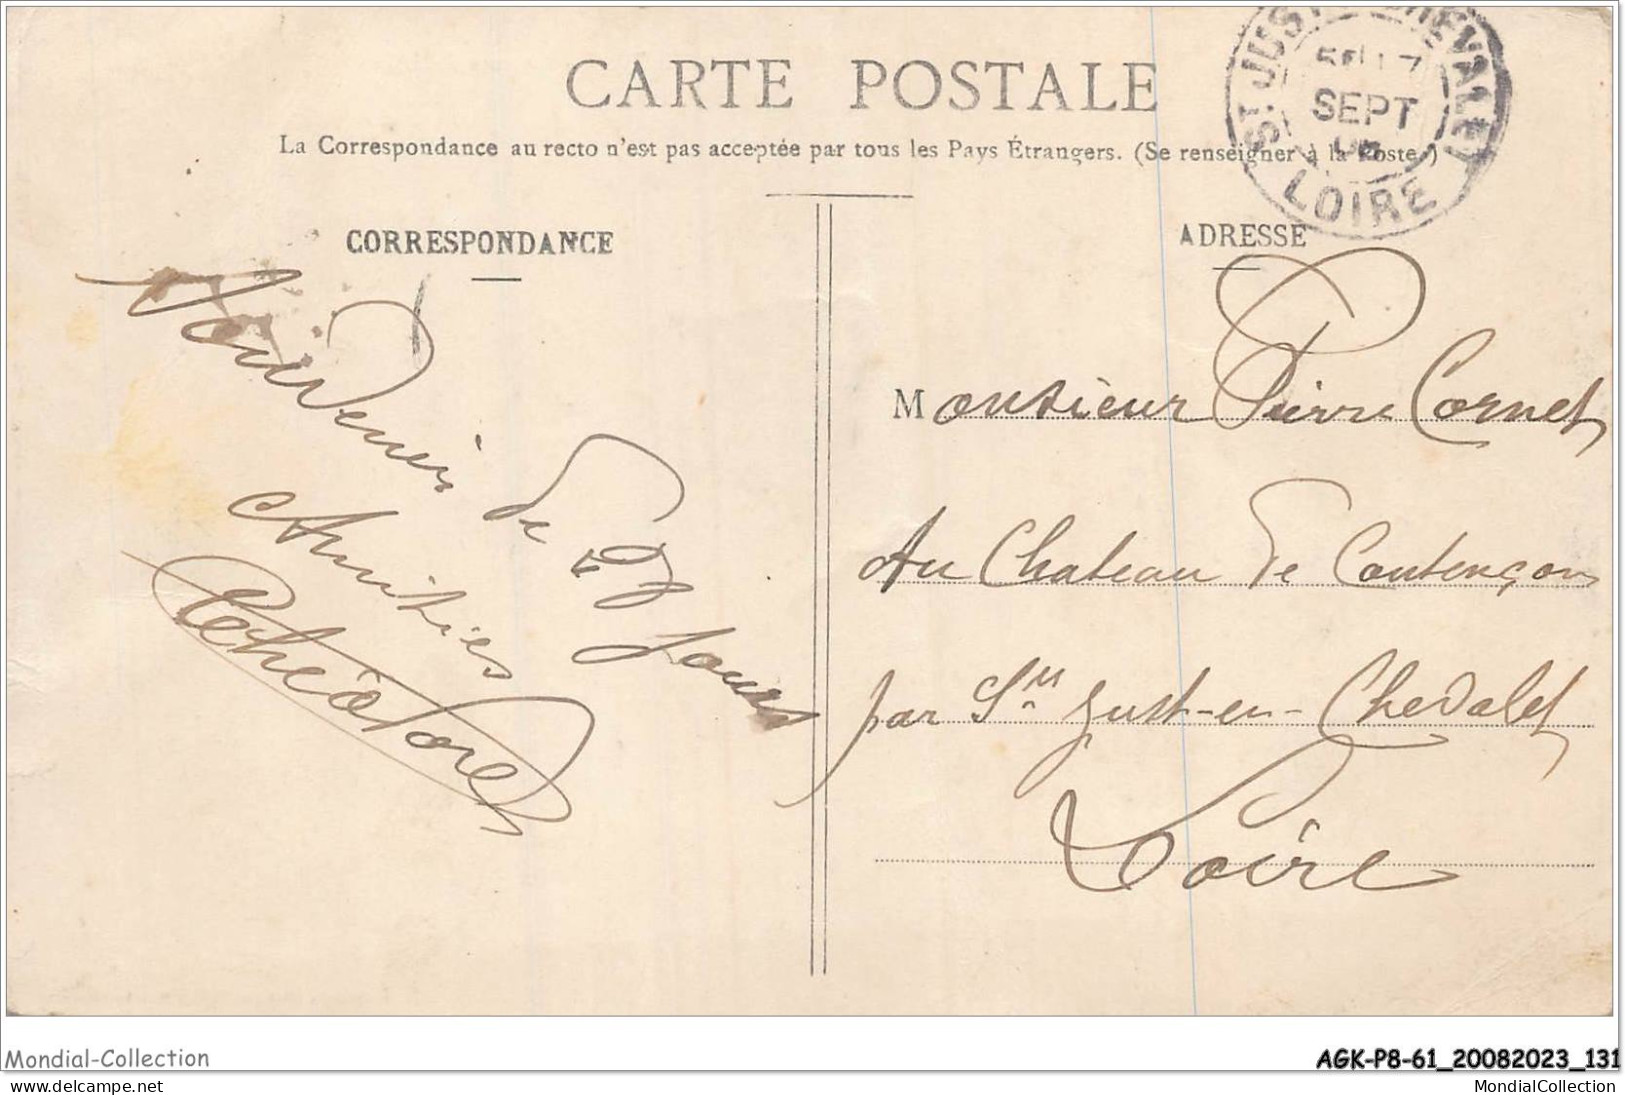 CARTE POSTALE
La Correspondance au recto n'est pas acceptée par tous les Pays Étrangers. (Se renseigner à la Poste.)
ST. JUST CHEVALET
SEPT
LOIRE
CORRESPONDANCE
Souvenir de 2 Jours
Amitiés
ADRESSE
Monsieur Pierre Cornet
Au Chateau de Contençon
par St Just-en-Chevalet
Loire
Mondial-Collection
www.delcampe.net
AGK-P8-61_20082023_131
MondialCollection